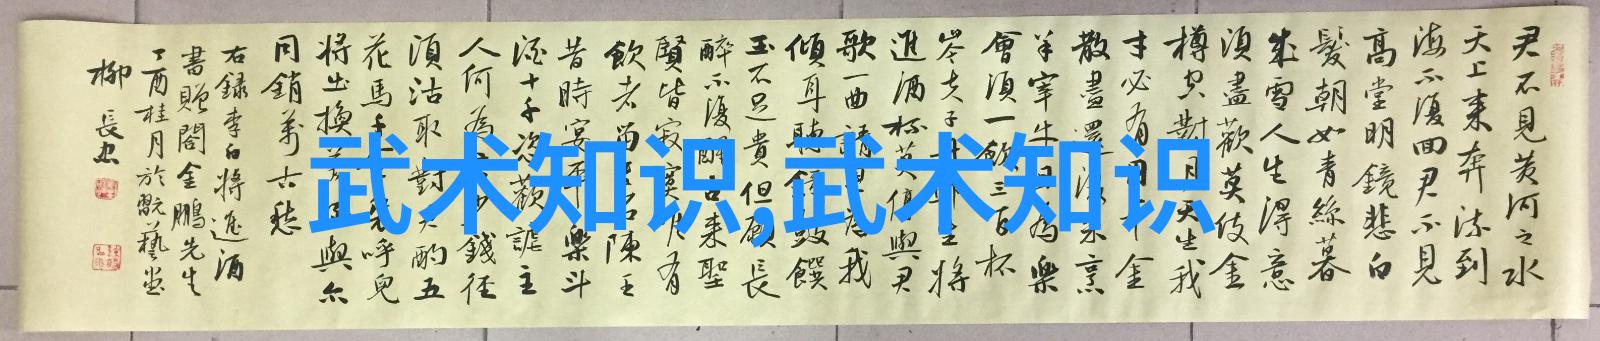 君不見黃河之水
天上來奔流到
海不復回君不見
高堂明鏡悲白
髮朝如青絲暮
成雪人生得意
須盡歡莫使金
樽空對月天生我
才必有用千金
散盡還復來烹
羊宰牛且為樂
會須一飲三百杯
岑夫子丹丘生將
進酒杯莫停與君
歌一曲請君為我
傾耳聽鐘鼓饌
玉不足貴但願長
醉不復醒古來聖
賢皆寂寞惟有
飲者留其名陳王
昔時宴平樂斗
酒十千恣歡謔主
人何為言少錢徑
須沽取對君酌五
花馬千金裘呼兒
將出換美酒與爾
同銷萬古愁
右録李白將進酒
書贈閣金鵬先生
丁酉桂月於翫藝堂
柳長忠
武术知识,武术知识